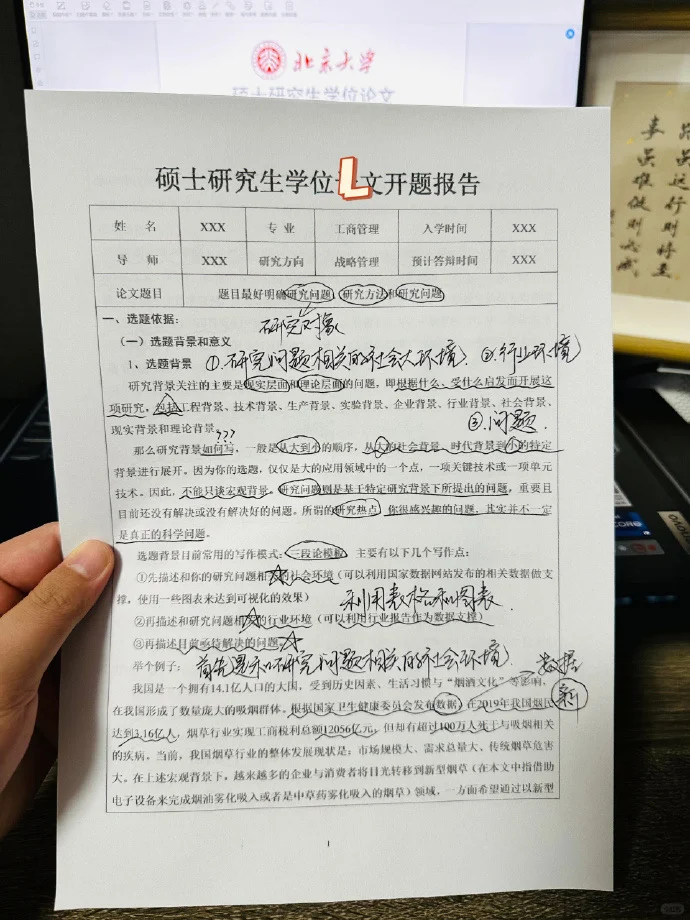 北京大学
硕士研究生学位论文
硕士研究生学位 L 文开题报告
姓 名 XXX 专 业 工商管理 入学时间 XXX
导 师 XXX 研究方向 战略管理 预计答辩时间 XXX
论文题目 题目最好明确研究问题、研究方法和研究问题
研究对象
一、选题依据:
(一)选题背景和意义
1、选题背景 ①.研究问题相关的社会大环境. ②.行业环境
研究背景关注的主要是现实层面和理论层面的问题,即根据什么、受什么启发而开展这
项研究,包括工程背景、技术背景、生产背景、实验背景、企业背景、行业背景、社会背景、
现实背景和理论背景。 ③.问题.
???
那么研究背景如何写,一般是从大到小的顺序,从大的社会背景、时代背景到小的特定
背景进行展开。因为你的选题,仅仅是大的应用领域中的一个点,一项关键技术或一项单元
技术。因此,不能只谈宏观背景。研究问题则是基于特定研究背景下所提出的问题,重要且
目前还没有解决或没有解决好的问题。所谓的研究热点,你很感兴趣的问题,其实并不一定
是真正的科学问题。
选题背景目前常用的写作模式:三段论模板,主要有以下几个写作点:
①先描述和你的研究问题相关的社会环境(可以利用国家数据网站发布的相关数据做支
撑,使用一些图表来达到可视化的效果) 利用表格和图表.
②再描述和研究问题相关的行业环境(可以利用行业报告作为数据支撑)
③再描述目前亟待解决的问题
举个例子: 首先是和研究问题相关的社会环境. 数据
新
我国是一个拥有14.1亿人口的大国,受到历史因素、生活习惯与“烟酒文化”等影响,
在我国形成了数量庞大的吸烟群体。根据国家卫生健康委员会发布数据,在2019年我国烟民
达到3.16亿人,烟草行业实现工商税利总额12056亿元,但却有超过100万人死于与吸烟相关
的疾病。当前,我国烟草行业的整体发展现状是:市场规模大、需求总量大、传统烟草危害
大。在上述宏观背景下,越来越多的企业与消费者将目光转移到新型烟草(在本文中指借助
电子设备来完成烟油雾化吸入或者是中草药雾化吸入的烟草)领域,一方面希望通过以新型
1